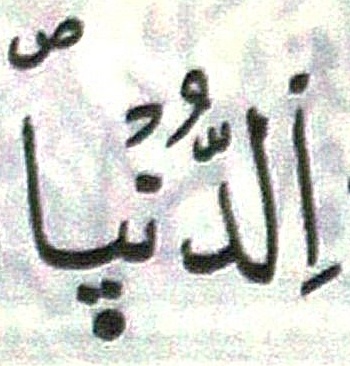 اِ۬لدُّنْي۪اۖ